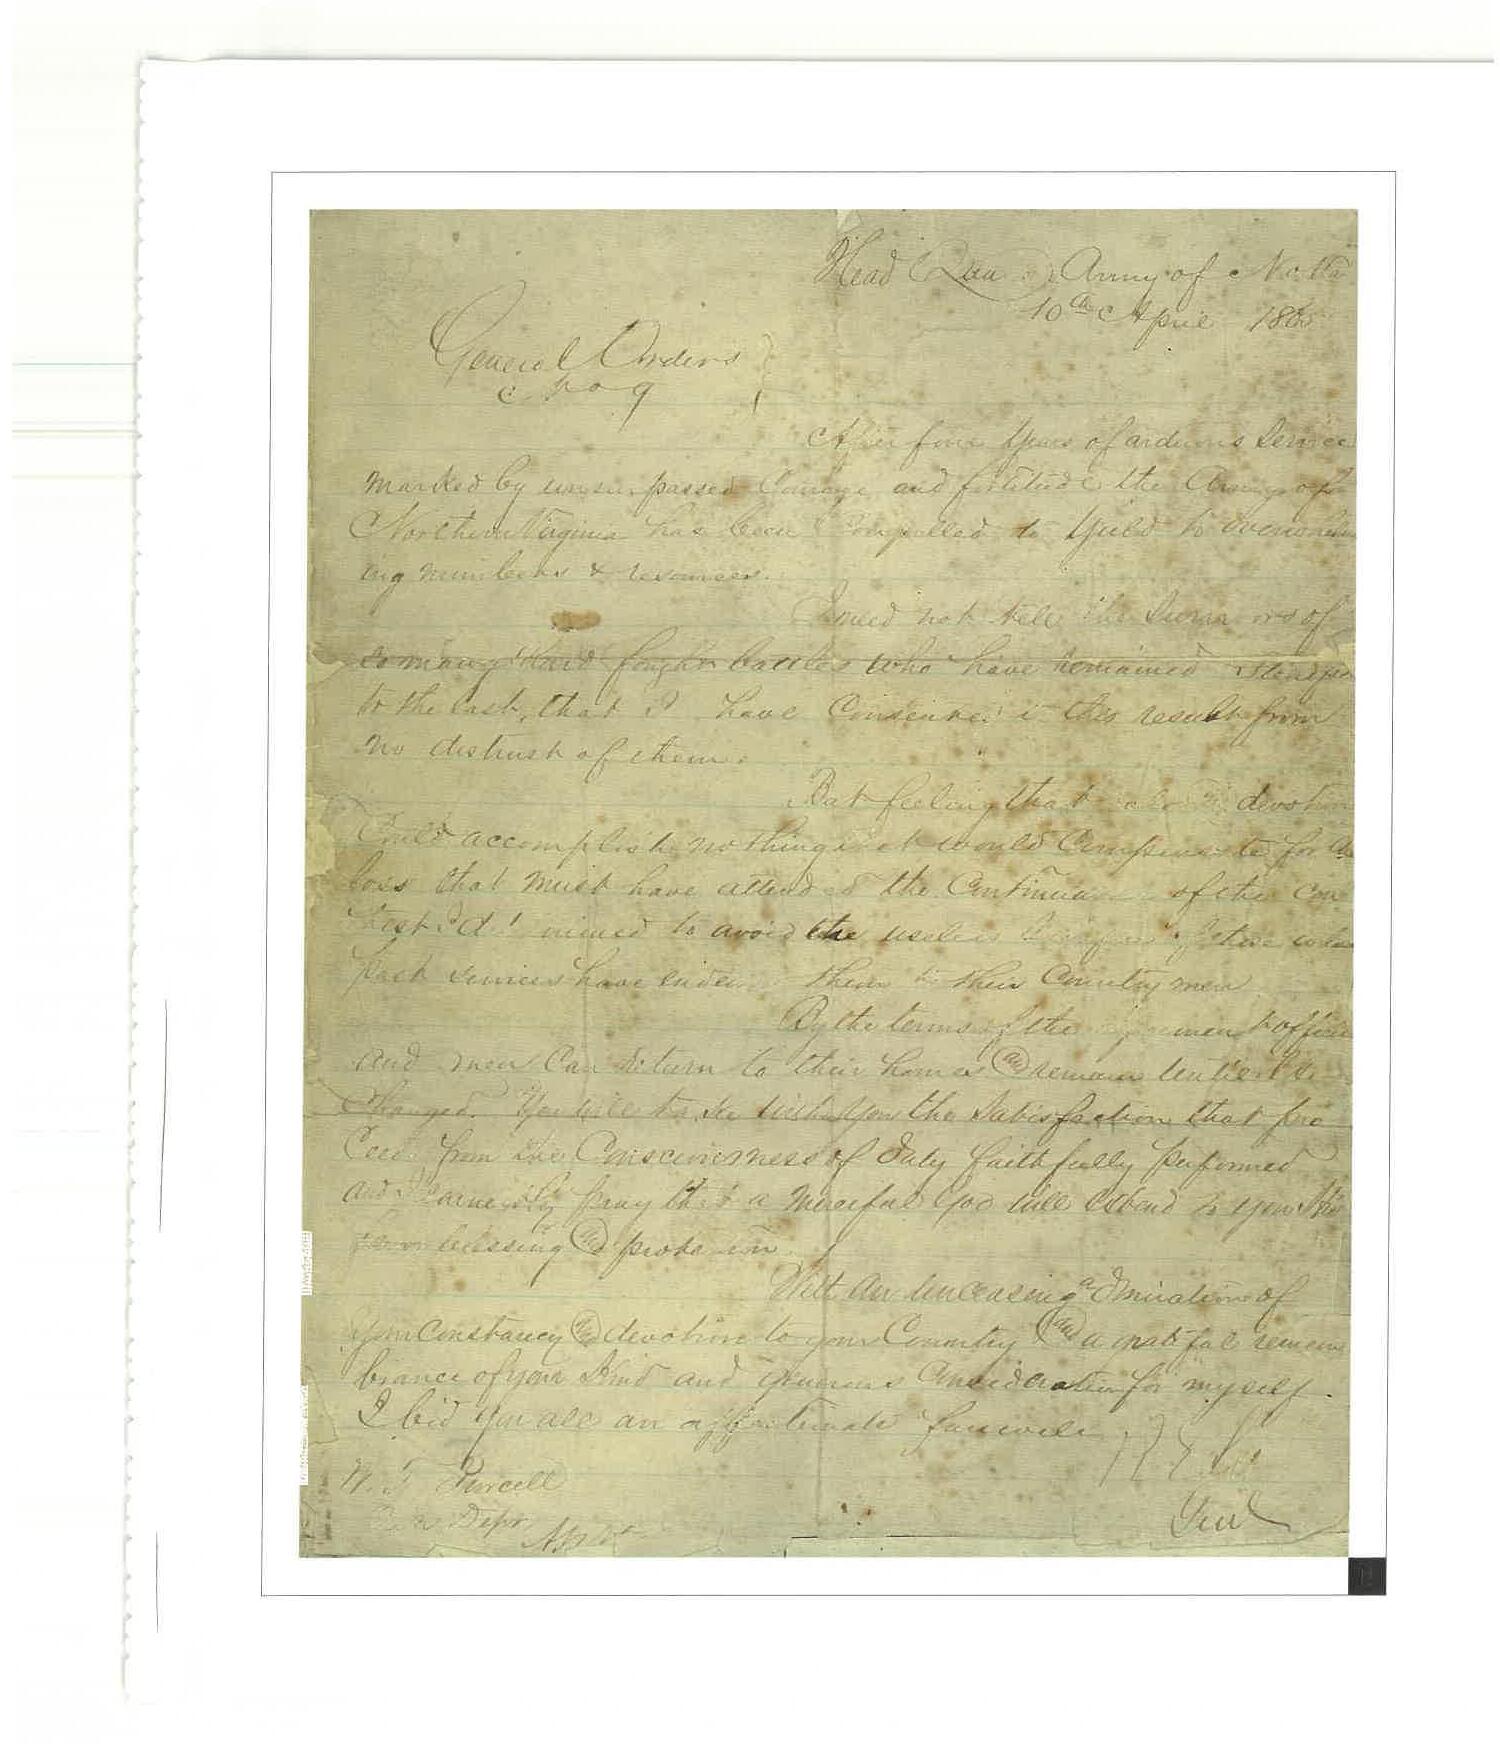 Head Qua Army of No. Va
10th April 1865
General Orders
No 9
After four Years of arduous Service
marked by unsurpassed Courage and fortitude the Army of
Northern Virginia has been Compelled to Yield to overwhelm
ing numbers & resources.
I need not tell the Survivors of
so many hard fought battles who have remained Steadfas
to the last, that I have Consented to this result from
no distrust of them.
But feeling that valor and devotion
Could accomplish nothing that would Compensate for the
loss that must have attended the Continuance of the Con
test I determined to avoid the useless Sacrifice of those whose
past services have endeared them to their Country men
By the terms of the agreement officers
and men Can return to their homes and remain until Ex
changed. You will take with you the Satisfaction that pro
ceeds from the Consciousness of Duty faithfully performed
and I earnestly pray that a merciful God will extend to you His
blessing and protection
With an unceasing admiration of
your Constancy and devotion to your Country and a grateful remem
brance of your Kind and generous Consideration for myself.
I bid you all an affectionate farewell
R E Lee
Genl
W. T. Purcell
Dept